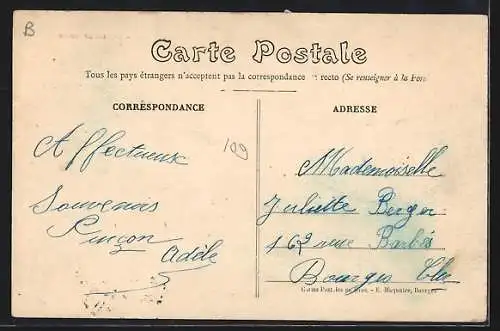 B
Carte Postale
Tous les pays étrangers n'acceptent pas la correspondance recto (Se renseigner à la
CORRESPONDANCE
ADRESSE
109
Affectueux
Souvenirs
Adèle
Mademoiselle
Juliette Berger
162 rue Barbès
Bourges Cher